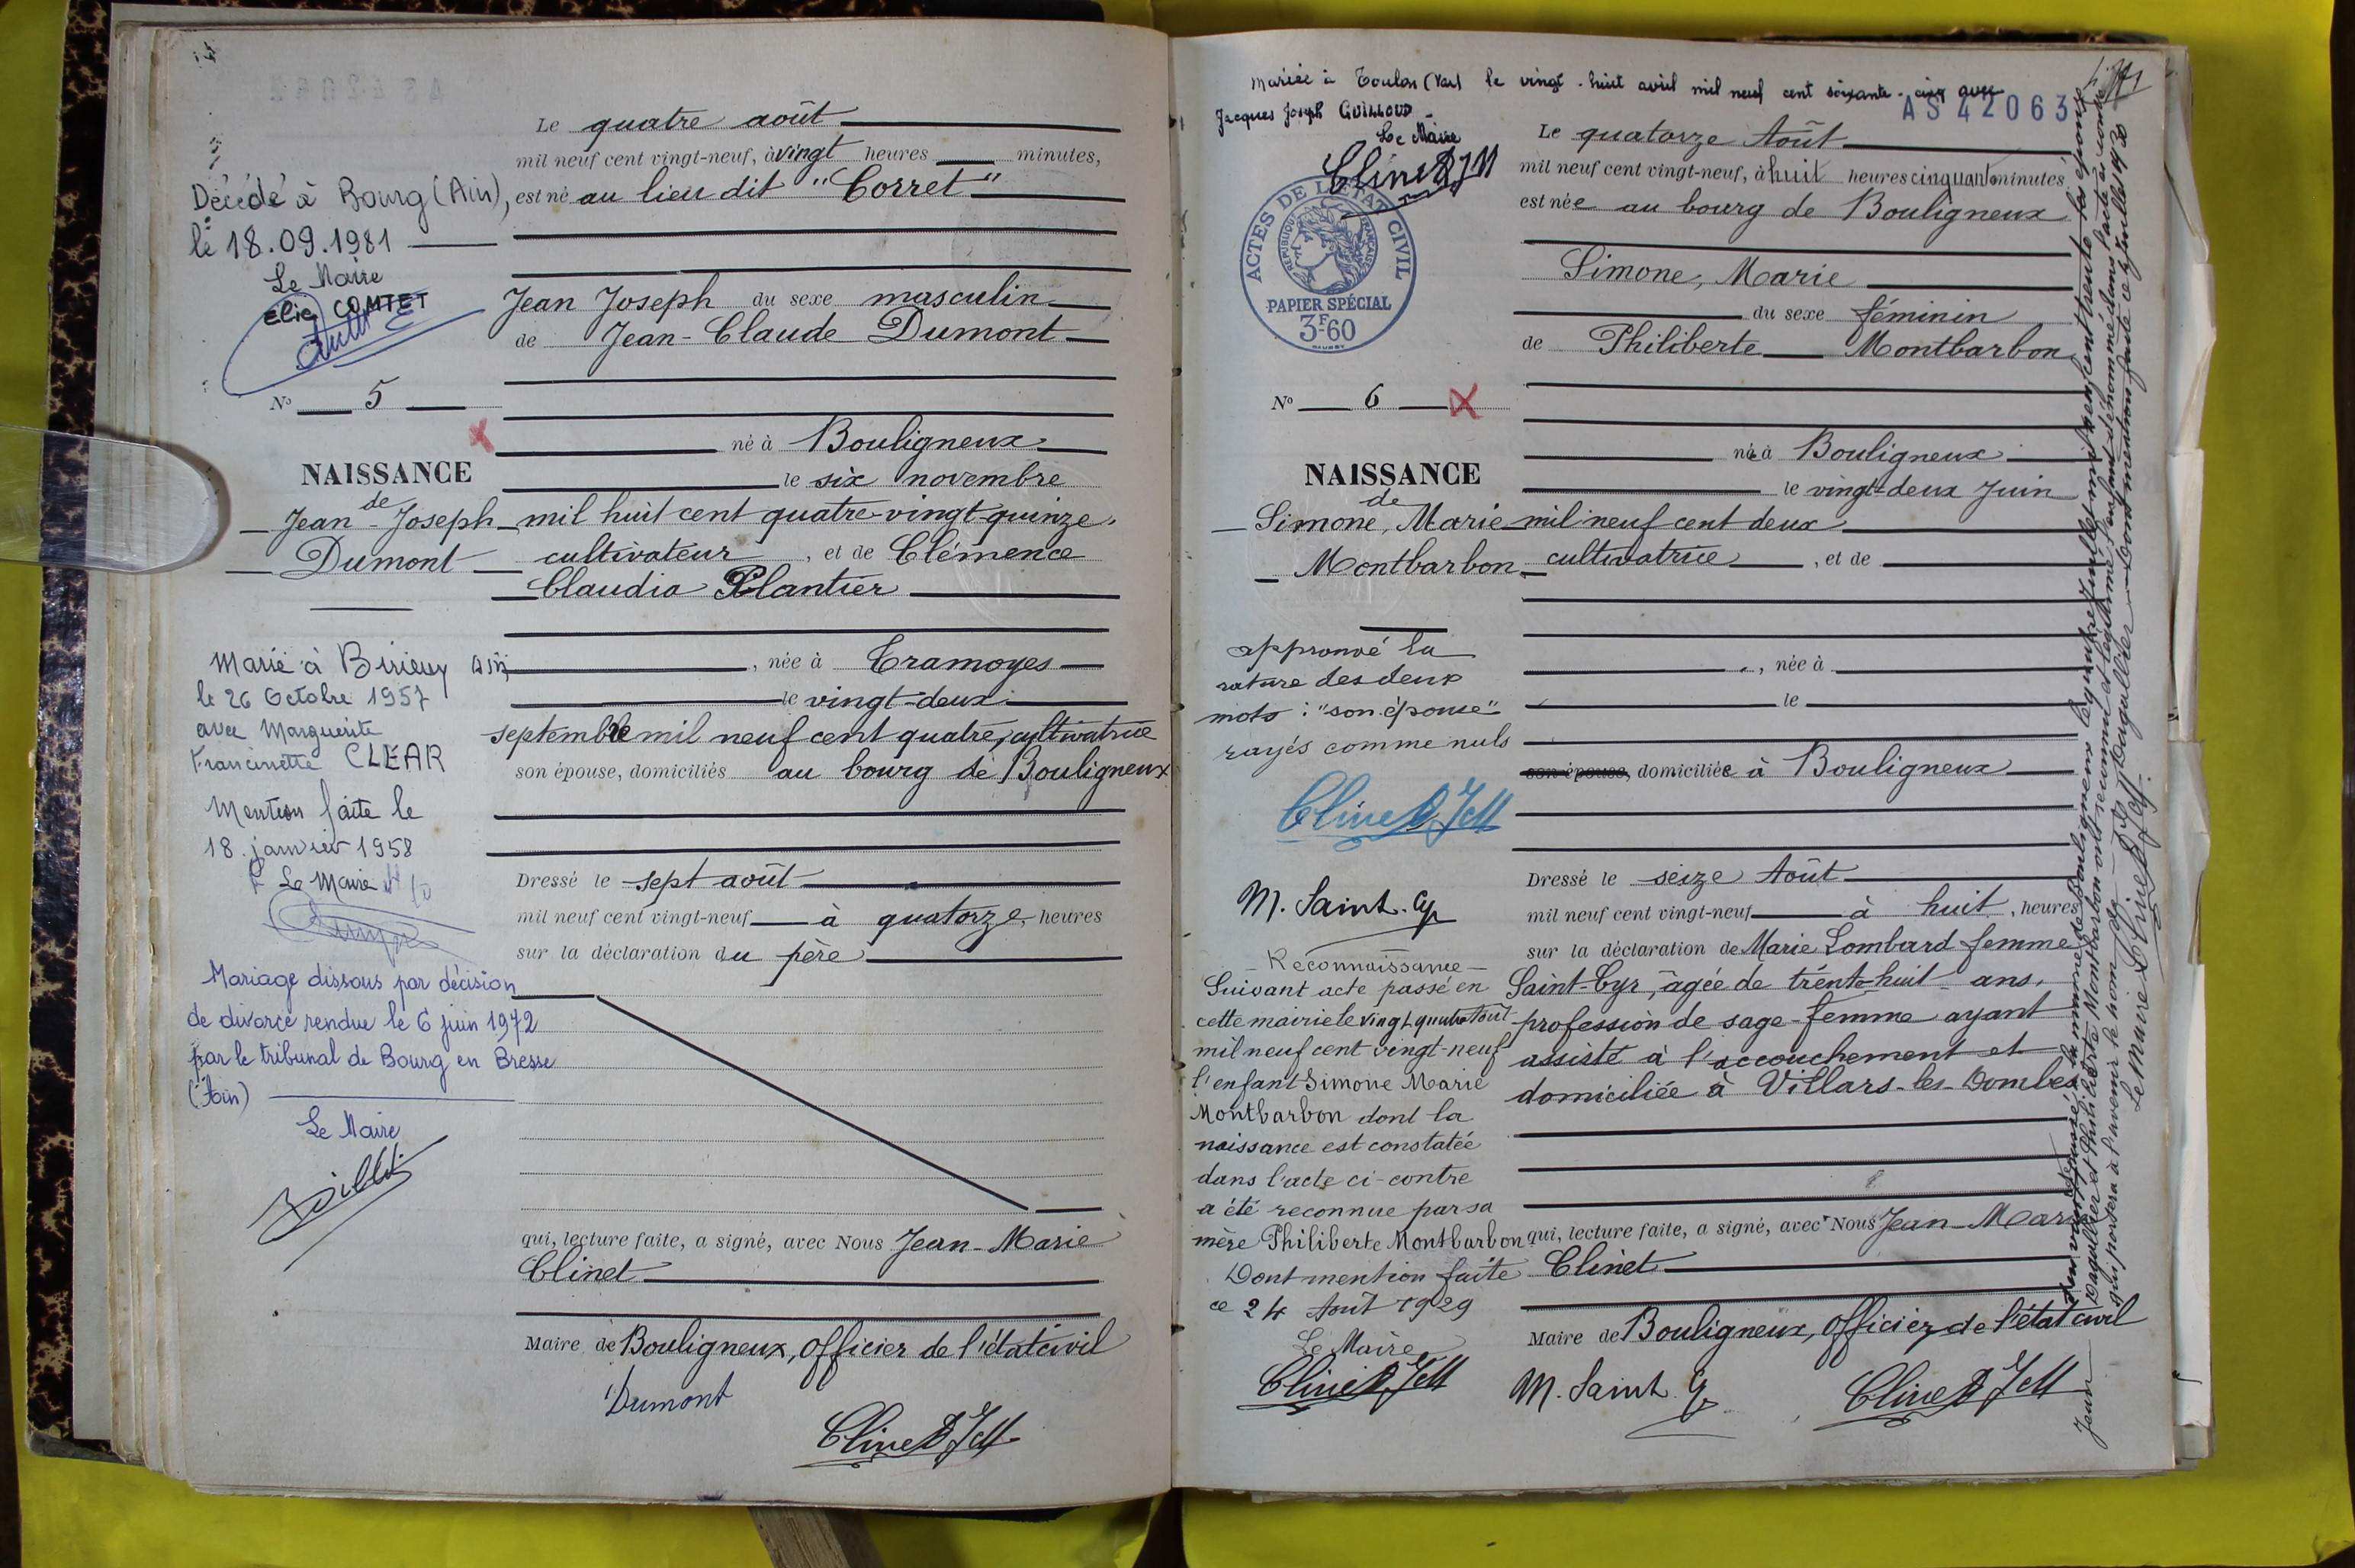 Le quatre août
mil neuf cent vingt-neuf, à vingt heures minutes,
est né au lieu dit "Corret"
Jean Joseph du sexe masculin
de Jean-Claude Dumont
né à Bouligneux
le six novembre
mil huit cent quatre-vingt-quinze,
cultivateur, et de Clémence
Claudia Plantier
, née à Tramoyes
le vingt-deux
septembre mil neuf cent quatre, cultivatrice
son épouse, domiciliés au bourg de Bouligneux
Dressé le sept août
mil neuf cent vingt-neuf à quatorze heures
sur la déclaration du père
qui, lecture faite, a signé, avec Nous Jean-Marie
Clinet
Maire de Bouligneux, Officier de l'état civil
Dumont
Clinet JM
Décédé à Bourg (Ain),
le 18.09.1981
Le Maire
Elie COMTET
No 5
NAISSANCE
de
Jean-Joseph
Dumont
Marié à Birieux Ain
le 26 Octobre 1957
avec Marguerite
Francinette CLEAR
Mention faite le
18 janvier 1958
Le Maire
Mariage dissous par décision
de divorce rendue le 6 juin 1972
par le tribunal de Bourg en Bresse
(Ain)
Le Maire
Mariée à Toulon (Var) le vingt-huit avril mil neuf cent soixante-cinq avec
Jacques Joseph GUILLOUD
Le Maire
Clinet JM
AS 42063
ACTES DE L'ETAT CIVIL
REPUBLIQUE FRANÇAISE
PAPIER SPÉCIAL
3F60
No 6
NAISSANCE
de
Simone, Marie
Montbarbon
approuvé la
rature des deux
mots : "son épouse"
rayés comme nuls
Clinet JM
M. Saint-Cyr
Reconnaissance
Suivant acte passé en
cette mairie le vingt quatre Août
mil neuf cent vingt-neuf
l'enfant Simone Marie
Montbarbon dont la
naissance est constatée
dans l'acte ci-contre
a été reconnue par sa
mère Philiberte Montbarbon
Dont mention faite
ce 24 Août 1929
Le Maire
Clinet JM
Le quatorze Août
mil neuf cent vingt-neuf, à huit heures cinquante minutes,
est née au bourg de Bouligneux
Simone, Marie
du sexe féminin
de Philiberte Montbarbon
née à Bouligneux
le vingt-deux Juin
mil neuf cent deux
cultivatrice, et de
, née à
le
son épouse, domiciliée à Bouligneux
Dressé le seize Août
mil neuf cent vingt-neuf à huit, heures
sur la déclaration de Marie Lombard femme
Saint-Cyr, âgée de trente-huit ans,
profession de sage-femme ayant
assisté à l'accouchement et
domiciliée à Villars-les-Dombes
qui, lecture faite, a signé, avec Nous Jean-Marie
Clinet
Maire de Bouligneux, Officier de l'état civil
M. Saint-Cyr
Clinet JM
la mairie de Bouligneux le quatre juillet mil neuf cent trente les époux
Jean Daguillier et Philiberte Montbarbon ont reconnu et légitimé l'enfant dénommé dans l'acte ci-contre
qui portera à l'avenir le nom de Daguillier Dont mention faite ce juillet 1930
Le Maire Clinet JM